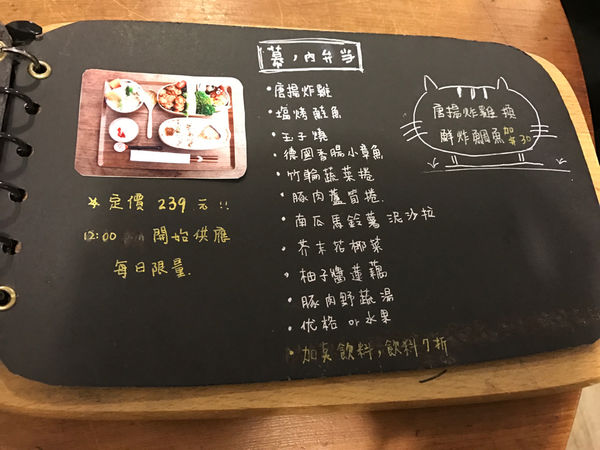 幕ノ内弁当
☆定價 239 元!!
12:00 開始供應
每日限量.
・唐揚炸雞
・塩烤鮭魚
・玉子燒
・德國香腸小章魚
・竹輪蔬菜捲
・豚肉蘆筍捲.
・南瓜馬鈴薯泥沙拉
・芥末花椰菜
・柚子醬蓮藕
・豚肉野蔬湯
・优格 or 水果
・加點飲料,飲料7折
唐揚炸雞 換
鮮炸鯛魚 加$30